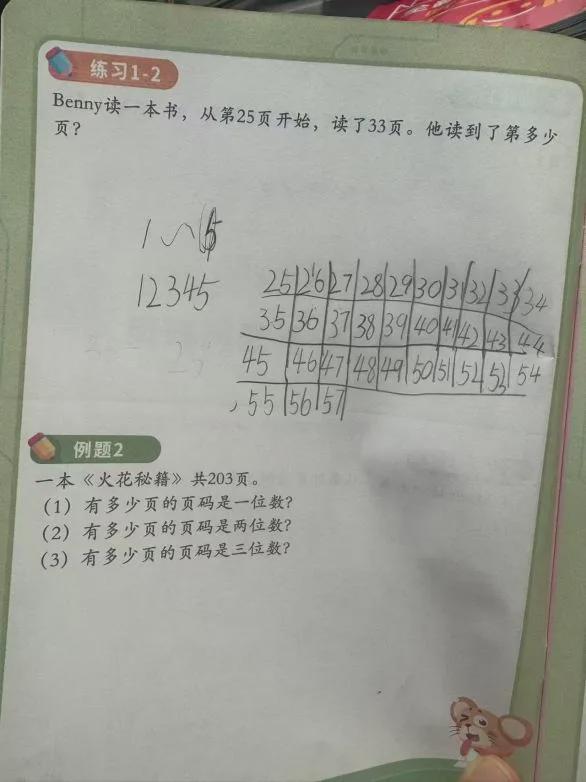 练习1-2
Benny读一本书，从第25页开始，读了33页。他读到了第多少
页？
1～5
12345
25 26 27 28 29 30 31 32 33 34
35 36 37 38 39 40 41 42 43 44
45 46 47 48 49 50 51 52 53 54
55 56 57
例题2
一本《火花秘籍》共203页。
（1）有多少页的页码是一位数？
（2）有多少页的页码是两位数？
（3）有多少页的页码是三位数？